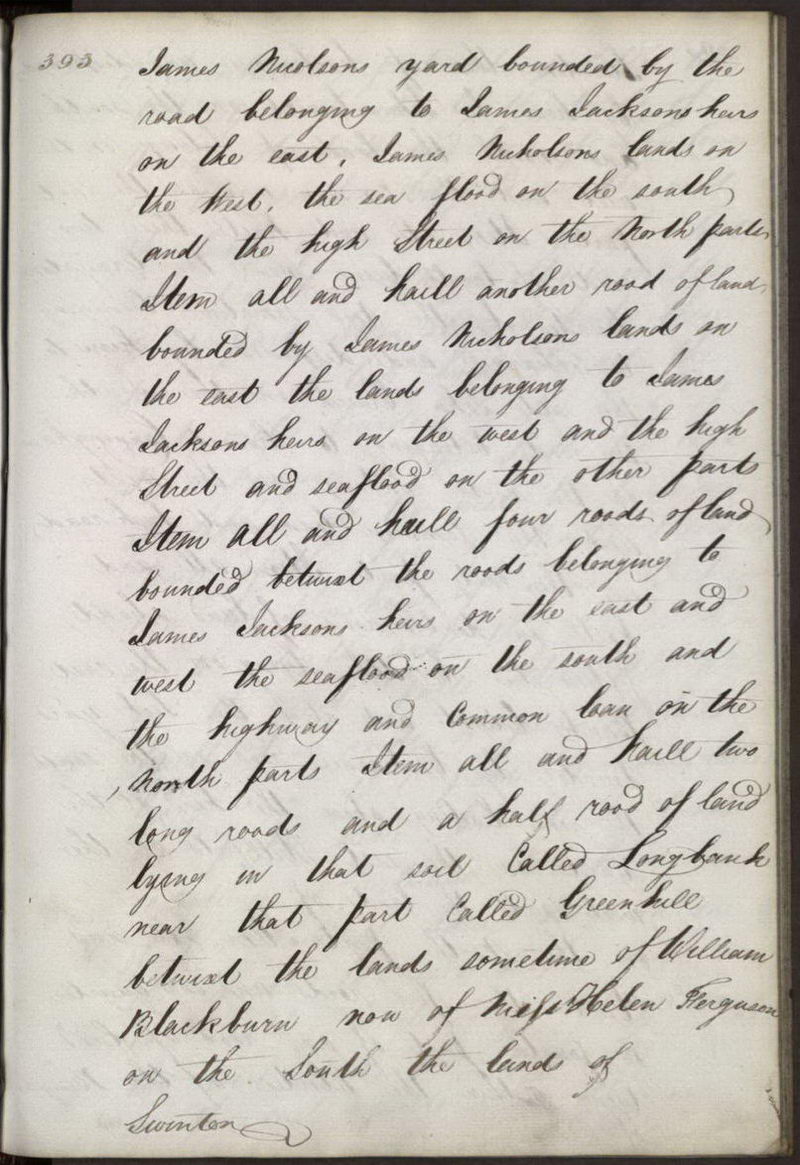 393
James Nicolsons yard bounded by the
road belonging to James Jacksons heirs
on the east, James Nicholsons lands on
the West, the sea flood on the south
and the high Street on the North parts
Item all and haill another rood of land,
bounded by James Nicholsons lands on
the east the lands belonging to James
Jacksons heirs on the west and the high
Street and seaflood on the other parts
Item all and haill four roods of land
bounded betwixt the roods belonging to
James Jacksons heirs on the east and
west the seaflood on the south and
the highway and Common loan on the
North parts Item all and haill two
long roods and a half rood of land
lying in that soil Called Longbank
near that part Called Greenhill
betwixt the lands sometime of William
Blackburn now of Miss Helen Ferguson
on the South the lands of
Swinton